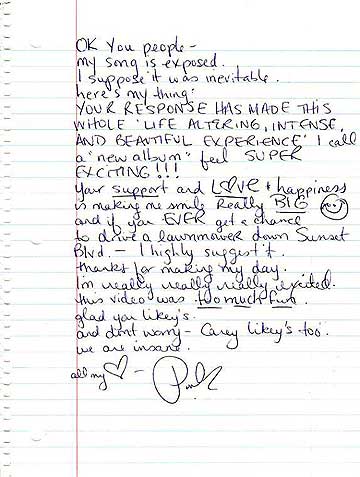 OK You people -
my song is exposed.
I suppose it was inevitable.
here's my thing:
YOUR RESPONSE HAS MADE THIS
WHOLE 'LIFE ALTERING, INTENSE,
AND BEAUTIFUL EXPERIENCE' I call
a "new album" feel SUPER
EXCITING!!!
Your support and LOVE + happiness
is making me smile Really BIG
and if you EVER get a chance
to drive a lawnmower down Sunset
Blvd. - I highly suggest it.
thanks for making my day.
I'm really really really excited.
this video was too much fun.
glad you likey's.
and dont worry - Carey likey's too.
we are insane.
all my ♡ - Pink